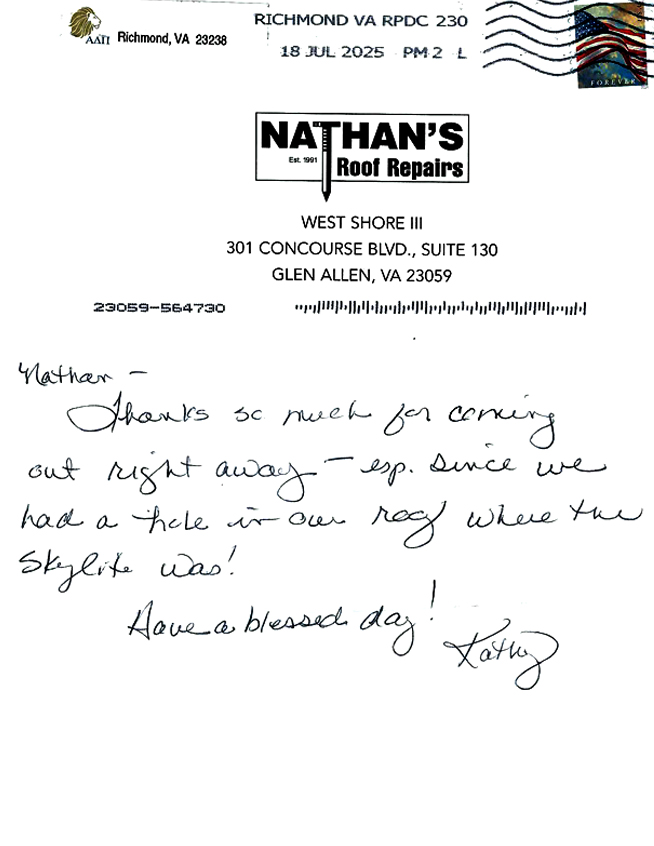 RICHMOND VA RPDC 230
18 JUL 2025 PM 2 L
ΑΔΠ Richmond, VA 23238
FOREVER
NATHAN'S
Est. 1991
Roof Repairs
WEST SHORE III
301 CONCOURSE BLVD., SUITE 130
GLEN ALLEN, VA 23059
23059-564730
Nathan –
Thanks so much for coming
out right away – esp. since we
had a hole in our roof where the
Skylite was!
Have a blessed day!
Kathy